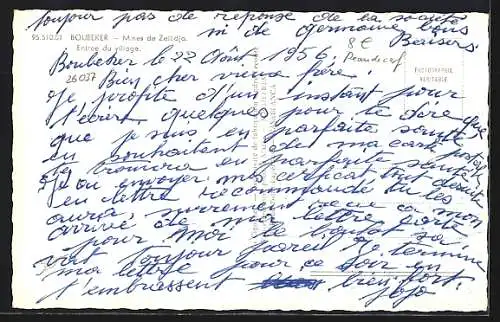 toujours pas de reponse de la societé
ni de germaine bons
Baisers
95.510.01 BOUBEKER — Mines de Zellidja.
Entrée du village.
Boubeker le 22 Août 1956
8 €
26037
PHOTOGRAPHIE
VÉRITABLE
Bien cher vieux frère.
Je profite d'un instant pour
t'ecrire quelque pour te dire que
que je suis en parfaite santé
en souhaitent de ma carte postale
te trouvera en parfaite santé
Je ai envoyer mes certificat tout de suite
en lettre recommandé tu les
aura surement reçue ca mon
arrivé de ma lettre
pour moi le boulot sa
vat toujour pareil Je termine
ma lettre pour ce soir en
t'embrassent bien fort.
Jojo